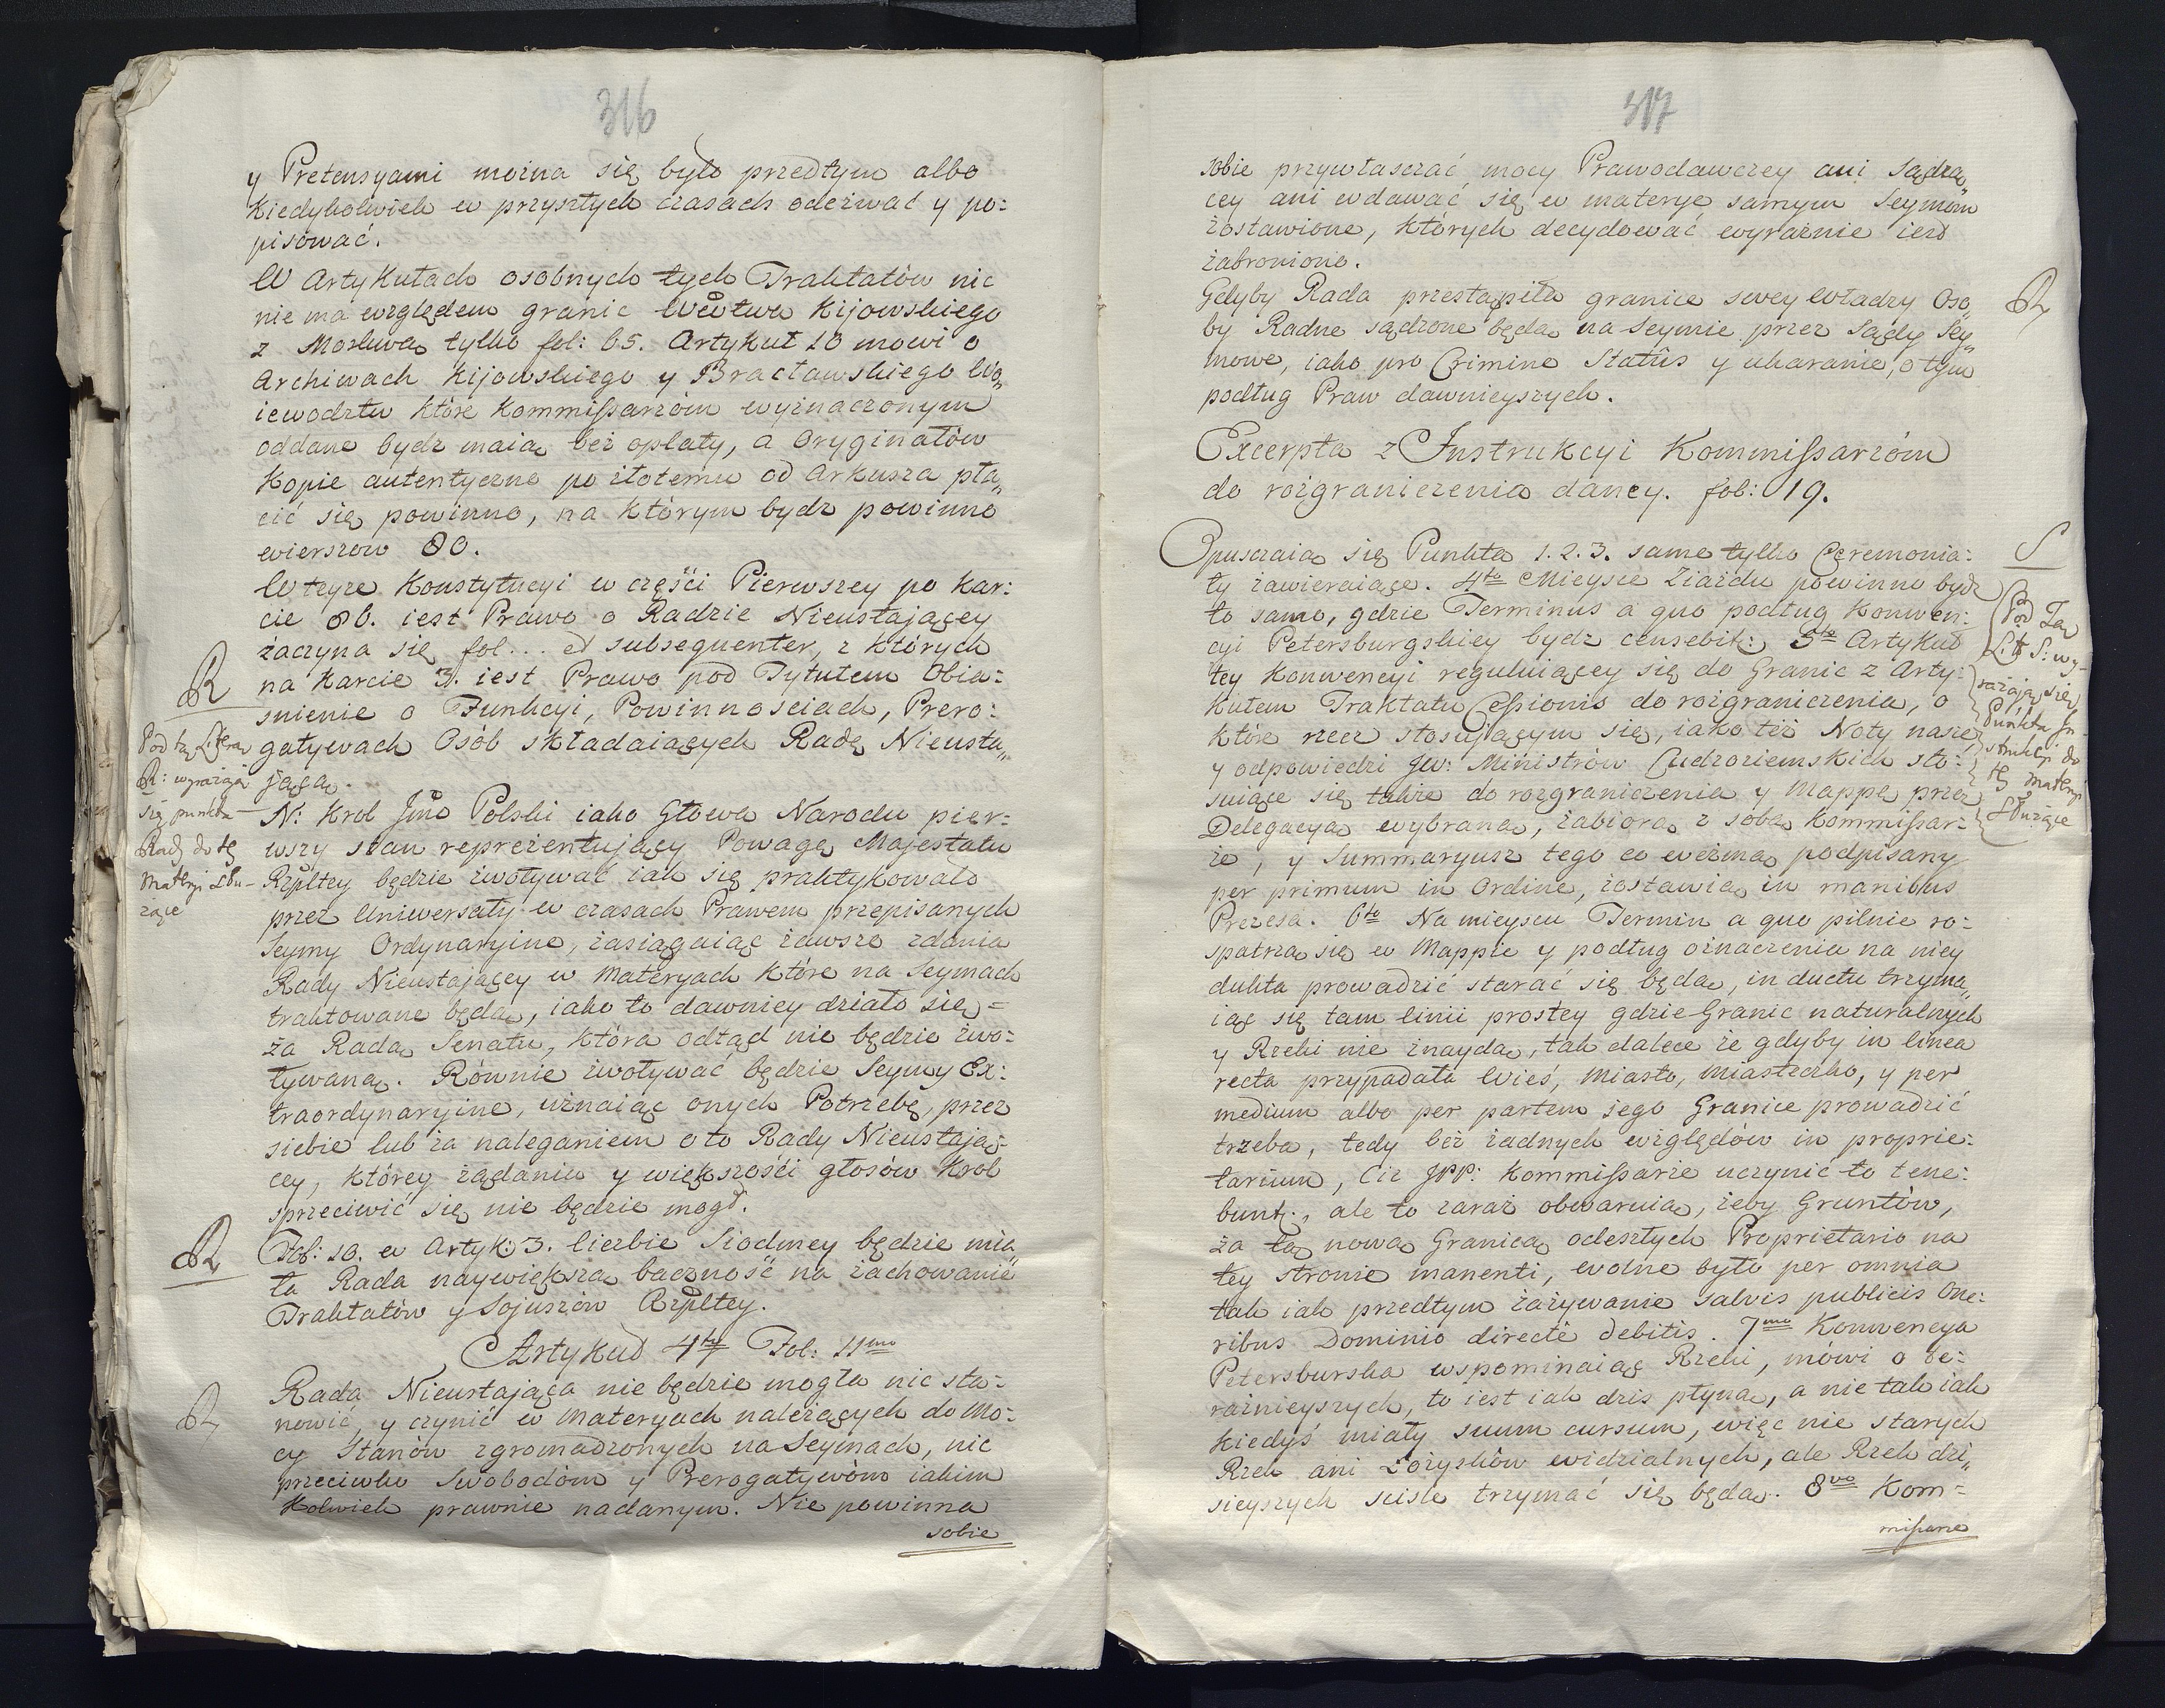 316
y Pretensyami można się było przedtym albo
kiedykolwiek w przyszłych czasach odezwać y po:
pisować.
W Artykułach osobnych tych Traktatów nic
nie ma względem granic Wdztwa Kijowskiego
z Moskwą tylko fol: 65. Artykuł 10 mowi o
Archiwach Kijowskiego y Bracławskiego Wo„
iewodztw które Kommissarzóm wyznaczonym
oddane bydz maią bez opłaty, a Oryginałów
Kopie autentyczne po złotemu od Arkusza pła„
cić się powinno, na którym bydz powinno
wierszow 80.
W teyze Konstytucyi w częśći Pierwszey po kar:
cie 86. iest Prawo o Radzie Nieustaiącey
zaczyna się fol... et subsequenter, z których
na karcie 3. iest Prawo pod Tytułem Obia:
snienie o Funkcyi, Powinnosciach, Prero:
gatywach Osób składaiących Radę Nieusta„
jącą.
R
Pod tą Literą
R: wyrażaią
się punkta
Rady do tey
materyi słu-
żące
N: Krol Jmć Polski iako Głowa Narodu pier:
wszy stan reprezentuiący Powagę Majestatu
Rzpltey będzie zwoływać iak się praktykowało
przez Uniwersały w czasach Prawem przepisanych
Seymy Ordynaryine, zasiągaiąc zawsze zdania
Rady Nieustaiącey w Materyach które na Seymach
traktowane będą, iako to dawniey działo się =
za Radą Senatu, która odtąd nie będzie zwo:
ływaną. Równie zwoływać będzie Seymy Ex:
traordynaryine, uznaiąc onych Potrzebę, przez
siebie lub za naleganiem o to Rady Nieustaią:
cey, którey żądaniu y większośći głosów Krol
sprzeciwić się nie będzie mogł.
R
Fol: 10. w Artyk: 3. liczbie Siodmey będzie mia„
ła Rada naywiększą baczność na zachowanie
Traktatów y Sojuszów Rzpltey.
Artykuł 4ty Fol: 11mo
R
Rada Nieustaiąca nie będzie mogła nic sta:
nowić, y czynić w Materyach należących do Mo:
cy Stanów zgromadzonych na Seymach, nic
przeciwko Swobodóm y Prerogatywóm iakim
Kolwiek prawnie nadanym. Nie powinna
sobie
317
sobie przywłaszczać mocy Prawodawczey ani Sądzą„
cey ani wdawać się w materye samym Seymóm
zostawione, których decydować wyraźnie iest
zabroniono.
Gdyby Rada przestąpiła granice swey Władzy Oso„
by Radne sądzone będą na Seymie przez Sądy Sey„
mowe, iako pro Crimine Statûs y ukaranie, o tym
podług Praw dawnieyszych.
R
Excerpta z Instrukcyi Kommissarzóm
do rozgraniczenia daney. fol: 19.
Opuszczaią się Punkta 1. 2. 3. same tylko Ceremonia:
ły zawieraiące. 4to Mieysce Ziazdu powinno bydz
to samo, gdzie Terminus a quo podług Konwen:
cyi Petersburgskiey bydz censebit: 5to Artykuł
tey Konwencyi reguluiącey się do Granic z Arty:
kułem Traktatu Cessionis do rozgraniczenia, o
które rzecz stosuiącym się, iako też Noty nasze
y odpowiedzi JW: Ministrów Cudzoziemskich sto:
suiące się także do rozgraniczenia y Mappę przez
Delegacyą wybraną, zabiorą z sobą Kommissar:
ze, y Summaryusz tego co wezmą podpisany
per primum in Ordine, zostawią in manibus
Prezesa. 6to Na mieyscu Termin a quo pilnie ro:
spatrzą się w Mappie y podług oznaczenia na niey
dukta prowadzić starać się będą, in ductu trzyma„
iąc się tam linii prostey gdzie Granic naturalnych
y Rzeki nie znaydą, tak dalece że gdyby in linea
recta przypadała Wieś, Miasto, Miasteczko, y per
medium albo per partem jego Granice prowadzić
trzeba, tedy bez żadnych względów in proprie:
tarium, Ciż JPP: Kommissarze uczynić to tene:
bunt:, ale to zaraz obwaruią, żeby Gruntów,
za tą nową Granicą odeszłych Proprietario na
tey stronie manenti, wolne było per omnia
tak iak przedtym zażywanie salvis publicis One:
ribus Dominio directè debitis. 7mo Konwencya
Petersburska wspominaiąc Rzeki, mówi o te:
raźnieyszych, to iest iak dzis płyną, a nie tak iak
kiedyś miały suum cursum, więc nie starych
Rzek ani Łożysków widzialnych, ale Rzek dzi„
sieyszych scisle trzymać się będą. 8vo Kom=
missarze
S
Pod Tą
Litt S: wy-
rażają się
Punkta In-
strukcyi do
tey materyi
służące